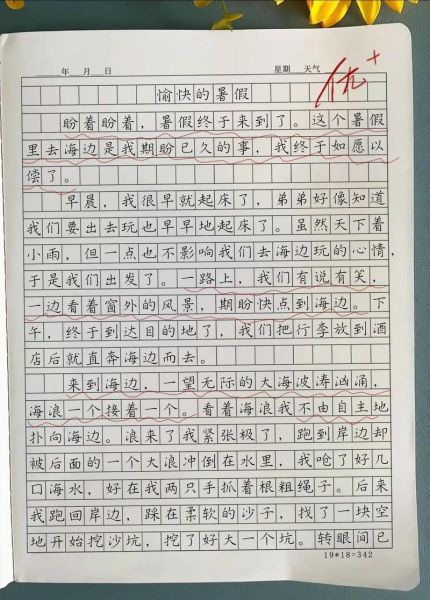 年 月 日 星期 天气
优+
愉快的暑假
盼着盼着，暑假终于来到了。这个暑假
里去海边是我期盼已久的事，我终于如愿以
偿了。
早晨，我很早就起床了，弟弟好像知道
我们要出去玩也早早地起床了。虽然天下着
小雨，但一点也不影响我们去海边玩的心情，
于是我们出发了。一路上，我们有说有笑，
一边看着窗外的风景，期盼快点到海边。下
午，终于到达目的地了，我们把行李放到酒
店后就直奔海边而去。
来到海边，一望无际的大海波涛汹涌，
海浪一个接着一个。看着海浪我不由自主地
扑向海边。浪来了我紧张极了，跑到岸边却
被后面的一个大浪冲倒在水里，我呛了好几
口海水，好在我两只手抓着根粗绳子。后来
我跑回岸边，踩在柔软的沙子，找了一块空
地开始挖沙坑，挖了好大一个坑。转眼间已
19*18=342